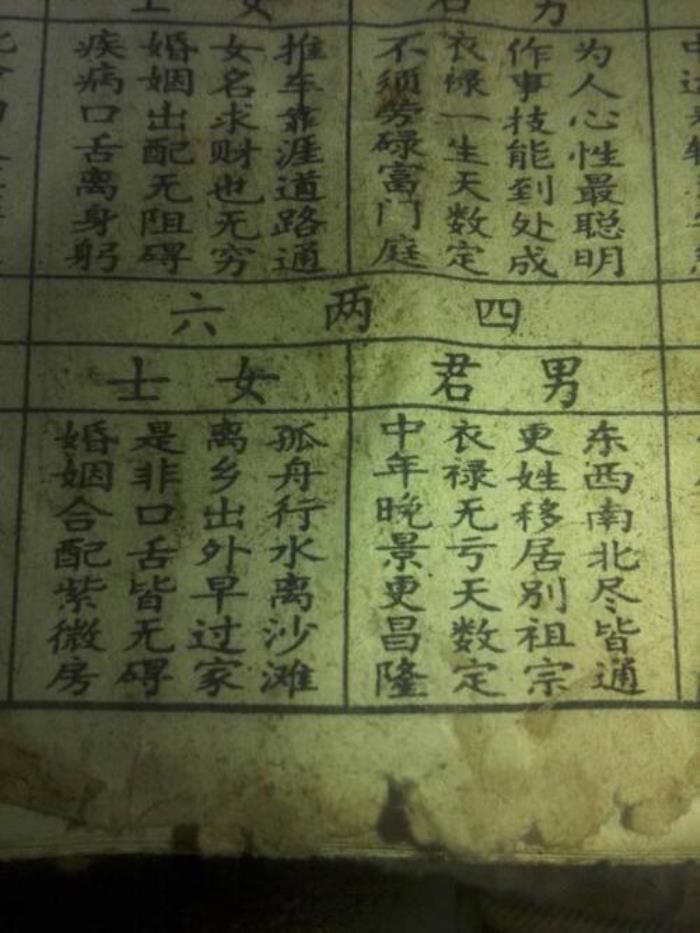 男君
为人心性最聪明
作事技能到处成
衣禄一生天数定
不须劳碌富门庭
女士
推车靠涯道路通
女名求财也无穷
婚姻出配无阻碍
疾病口舌离身躬
四两六
男君
东西南北尽皆通
更姓移居别祖宗
衣禄无亏天数定
中年晚景更昌隆
女士
孤舟行水离沙滩
离乡出外早过家
是非口舌皆无碍
婚姻合配紫微房